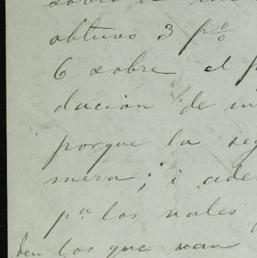 sobre el
obtuvo 3 p%
6 sobre el
dación de
porque la
mera; i ade
pª los vales
ben los que van